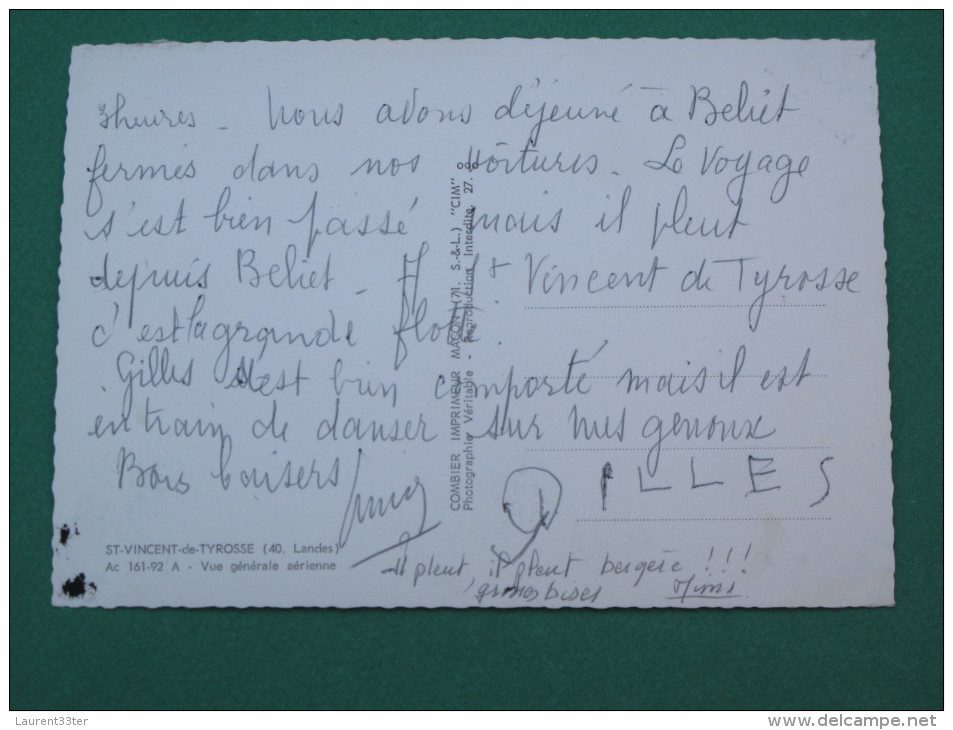 3heures - Nous avons déjeuné à Beliet
fermés dans nos voitures - Le Voyage
s'est bien passé mais il pleut
depuis Beliet - A St Vincent de Tyrosse
c'est la grande flotte.
Gilles s'est bien comporté mais il est
en train de danser sur mes genoux
Bons baisers
GILLES
il pleut, il pleut bergère !!!
grosses bises Mimi
COMBIER IMPRIMEUR MACON (71. S.-&-L.) "CIM"
Photographie Véritable - Reproduction Interdite. 27.
ST-VINCENT-de-TYROSSE (40. Landes)
Ac 161-92 A - Vue générale aérienne
Laurent33ter
www.delcampe.net